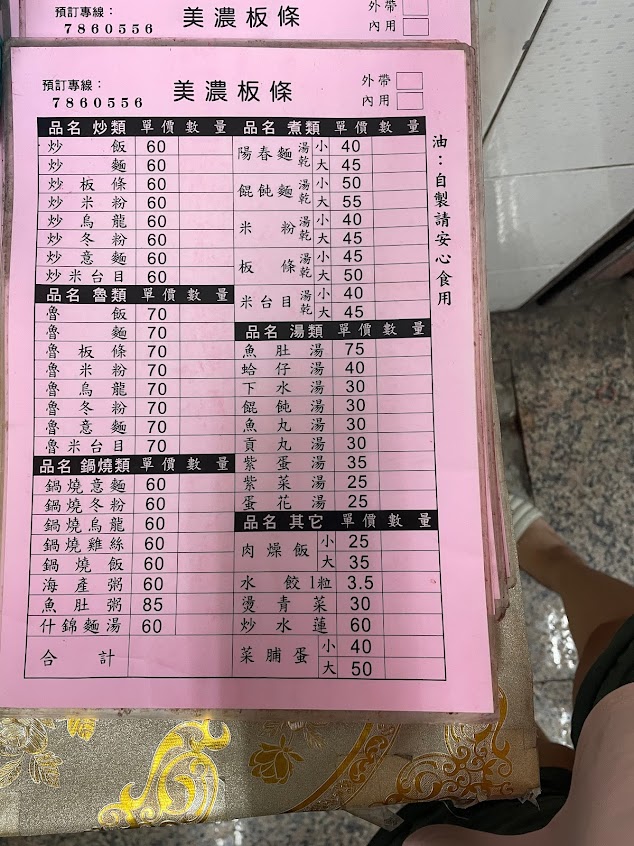 預訂專線：
7860556
美濃板條
外帶
內用
預訂專線：
7860556
美濃板條
外帶
內用
品名 炒類 單價 數量
炒飯 60
炒麵 60
炒板條 60
炒米粉 60
炒烏龍 60
炒冬粉 60
炒意麵 60
炒米台目 60
品名 魯類 單價 數量
魯飯 70
魯麵 70
魯板條 70
魯米粉 70
魯烏龍 70
魯冬粉 70
魯意麵 70
魯米台目 70
品名 鍋燒類 單價 數量
鍋燒意麵 60
鍋燒冬粉 60
鍋燒烏龍 60
鍋燒雞絲 60
鍋燒飯 60
海產粥 60
魚肚粥 85
什錦麵湯 60
合計
品名 煮類 單價 數量
陽春麵 湯乾 小 40
大 45
餛飩麵 湯乾 小 50
大 55
米粉 湯乾 小 40
大 45
板條 湯乾 小 45
大 50
米台目 湯乾 小 40
大 45
品名 湯類 單價 數量
魚肚湯 75
蛤仔湯 40
下水湯 30
餛飩湯 30
魚丸湯 30
貢丸湯 30
紫蛋湯 35
紫菜湯 25
蛋花湯 25
品名 其它 單價 數量
肉燥飯 小 25
大 35
水餃1粒 3.5
燙青菜 30
炒水蓮 60
菜脯蛋 小 40
大 50
油：自製請安心食用